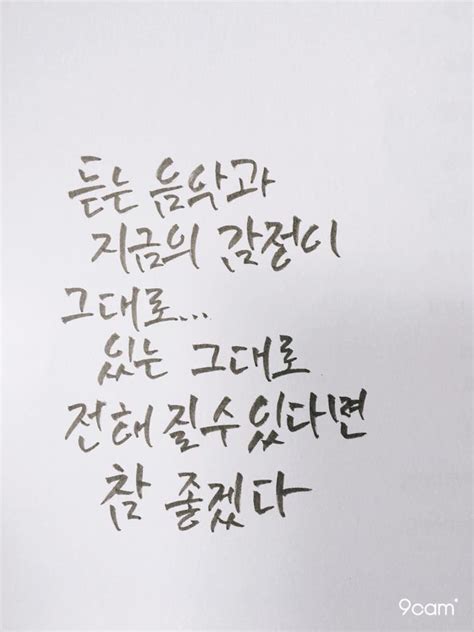 듣는 음악과
지금의 감정이
그대로...
있는 그대로
전해 질수 있다면
참 좋겠다
9cam